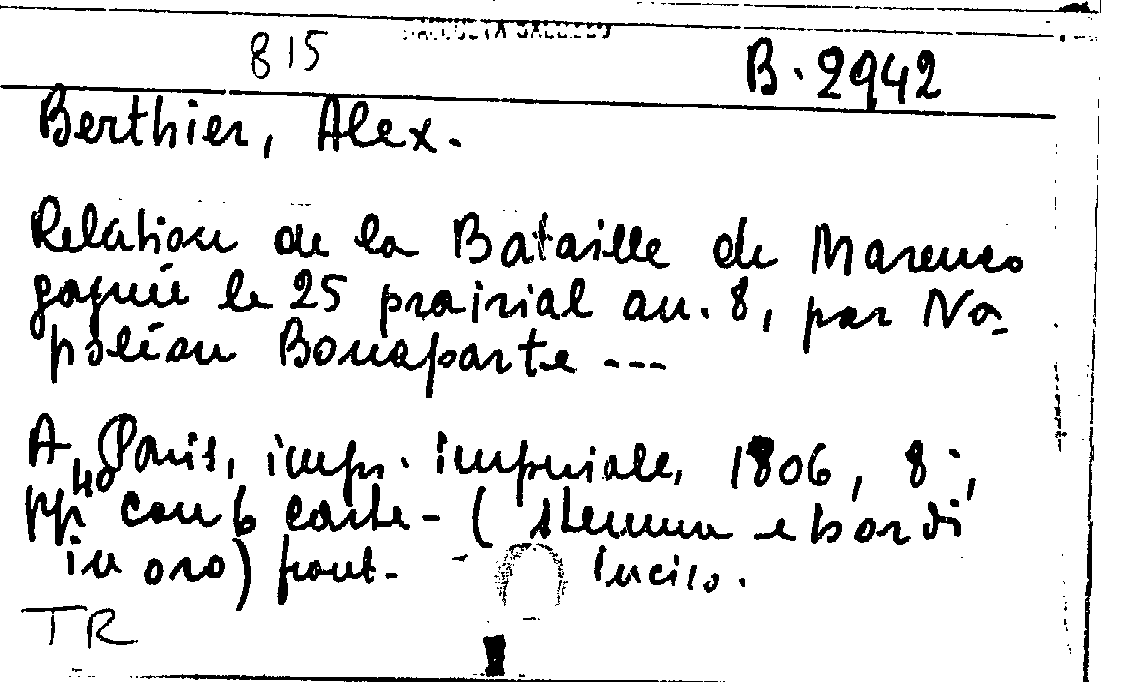 815
B. 2942
Berthier, Alex.
Relation de la Bataille de Marengo
gagnée le 25 prairial an. 8, par Na-
poléon Bonaparte ---
A Paris, impr. imperiale, 1806, 8°,
pp 40 con 6 carte - (stemma e bordi
in oro) front. inciso.
TR